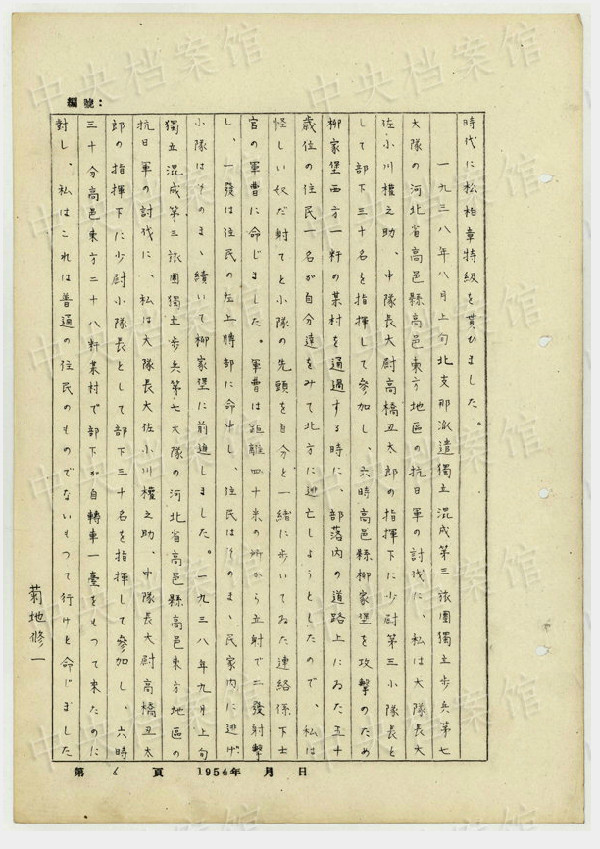 編號:
時代に松柏章特級を貰ひました。
一九三八年八月上旬北支那派遣獨立混成第三旅團獨立歩兵第七
大隊の河北省高邑縣高邑東方地區の抗日軍の討伐に、私は大隊長大
佐小川權之助、中隊長大尉高橋丑太郎の指揮下に少尉第三小隊長と
して部下三十名を指揮して参加し、六時高邑縣柳家堡を攻撃のため
柳家堡西方一粁の某村を通過する時に、部落内の道路上にゐた五十
歳位の住民一名が自分達をみて北方に逃亡しようとしたので、私は
怪しい奴だ射てと小隊の先頭を自分と一緒に歩いてゐた連絡係下士
官の軍曹に命じました。軍曹は距離四十米の所から立射で二發射撃
し、一發は住民の左上膊部に命中し、住民はそのまゝ民家内に逃げ、
小隊はそのまゝ續いて柳家堡に前進しました。一九三八年九月上旬
獨立混成第三旅團獨立歩兵第七大隊の河北省高邑縣高邑東方地區の
抗日軍の討伐に、私は大隊長大佐小川權之助、中隊長大尉高橋丑太
郎の指揮下に少尉小隊長として部下三十名を指揮して参加し、六時
三十分高邑東方二十八粁某村で部下が自轉車一臺をもつて来たのに
對し、私はこれは普通の住民のものでないもつて行けと命じました
菊地修一
第 6 頁 1954年 月 日
中央档案馆
中央档案馆
中央档案馆
中央档案馆
中央档案馆
中央档案馆